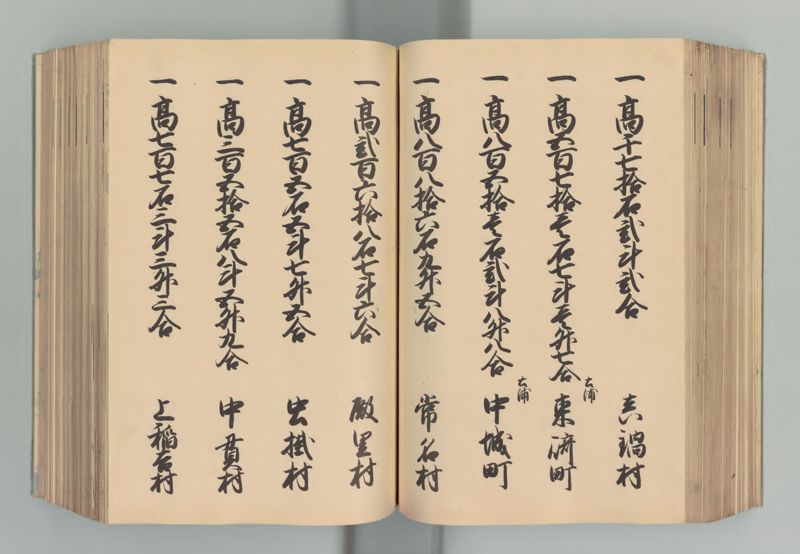 一高千七拾石弐斗弐合 真鍋村
一高五百七拾壱石七斗壱升七合 土浦 東崎町
一高八百五拾壱石弐斗八升八合 土浦 中城町
一高八百八拾六石九升五合 常名村
一高弐百六拾八石七斗六合 殿里村
一高七百五石五斗七升五合 虫掛村
一高三百五拾五石八斗五升九合 中貫村
一高七百七石三斗三升二合 上稲吉村